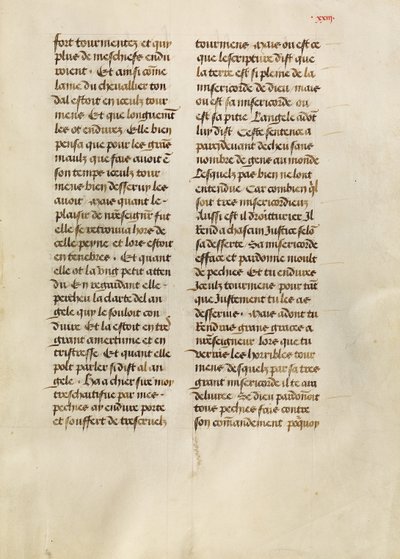 ·xxiii·
fort tourmentez et quy
plus de meschiefz endu
roient · Et ainsi cõme
lame du chevallier ton
dal estoit en iceulz tour
mens Et que longuemt
les ot endurez Elle bien
pensa que pour les grãs
maulz que fais avoit ẽ
son temps iceulz tour
mens bien desseruy les
avoit · Mais quant le
plaisir de nr̃eseignr̃ fut
elle se retrouva hors de
celle peyne et lors estoit
en tenebres · Et quant
elle ot la vng petit atten
du En regardant elle
percheu la clarte del an
gele quy le souloit con
duire Et la estoit en tres
grant amertume et en
tristresse Et quant elle
polt parler si dist al an
gele · Ha a chier sire moy
treschaitifue par mes
pechies ay endure porte
et souffert de trescruelz
tourmens · Mais ou est ce
que lescripture dist que
la terre est si pleine de la
misericorde de dieu · mais
ou est sa misericorde · ou
est sa pitie Langele adõt
luy dist Ceste sentence a
par cy devant decheu sans
nombre de gens au monde
Lesquelz pas bien ne lont
entendue Car combien ql̃
soit tres misericordieux
Aussi est il droitturier Il
Rend a chascun Justice selõ
sa desserte Sa misericorde
efface et pardonne moult
de pechies Et tu endures
Iceulz tourmens pour tãt
que Justement tu les as
desseruis · Mais adont tu
Rendras grans graces a
nr̃eseigneur lors que tu
verras les horribles tour
mens desquelz par sa tres
grant misericorde il te aura
delivree Se dieu pardonoit
tous pechies fais contre
son cõmandement pourquoy